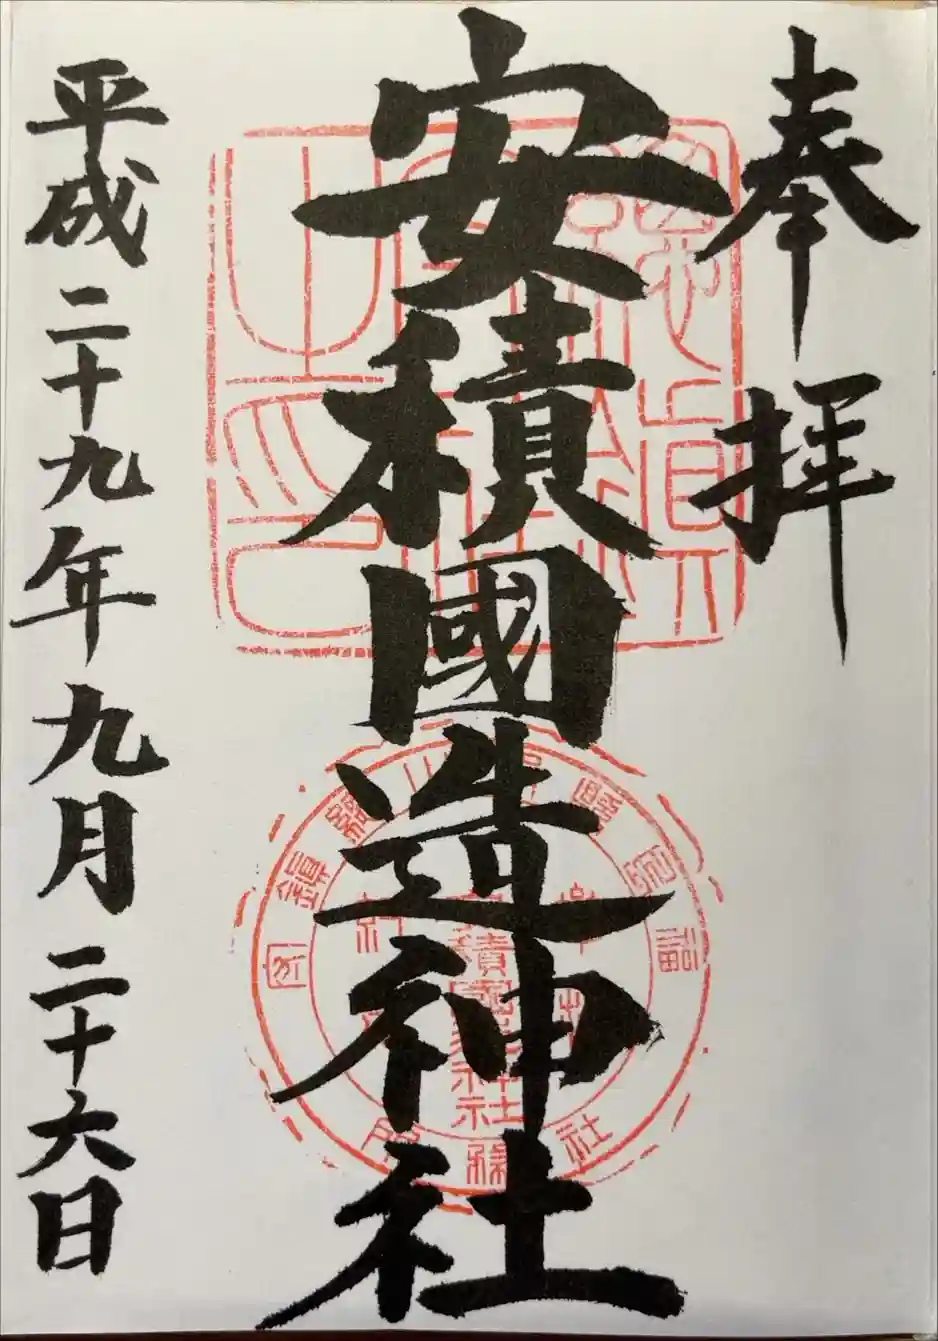 奉拝
安積國造神社
平成二十九年九月二十六日